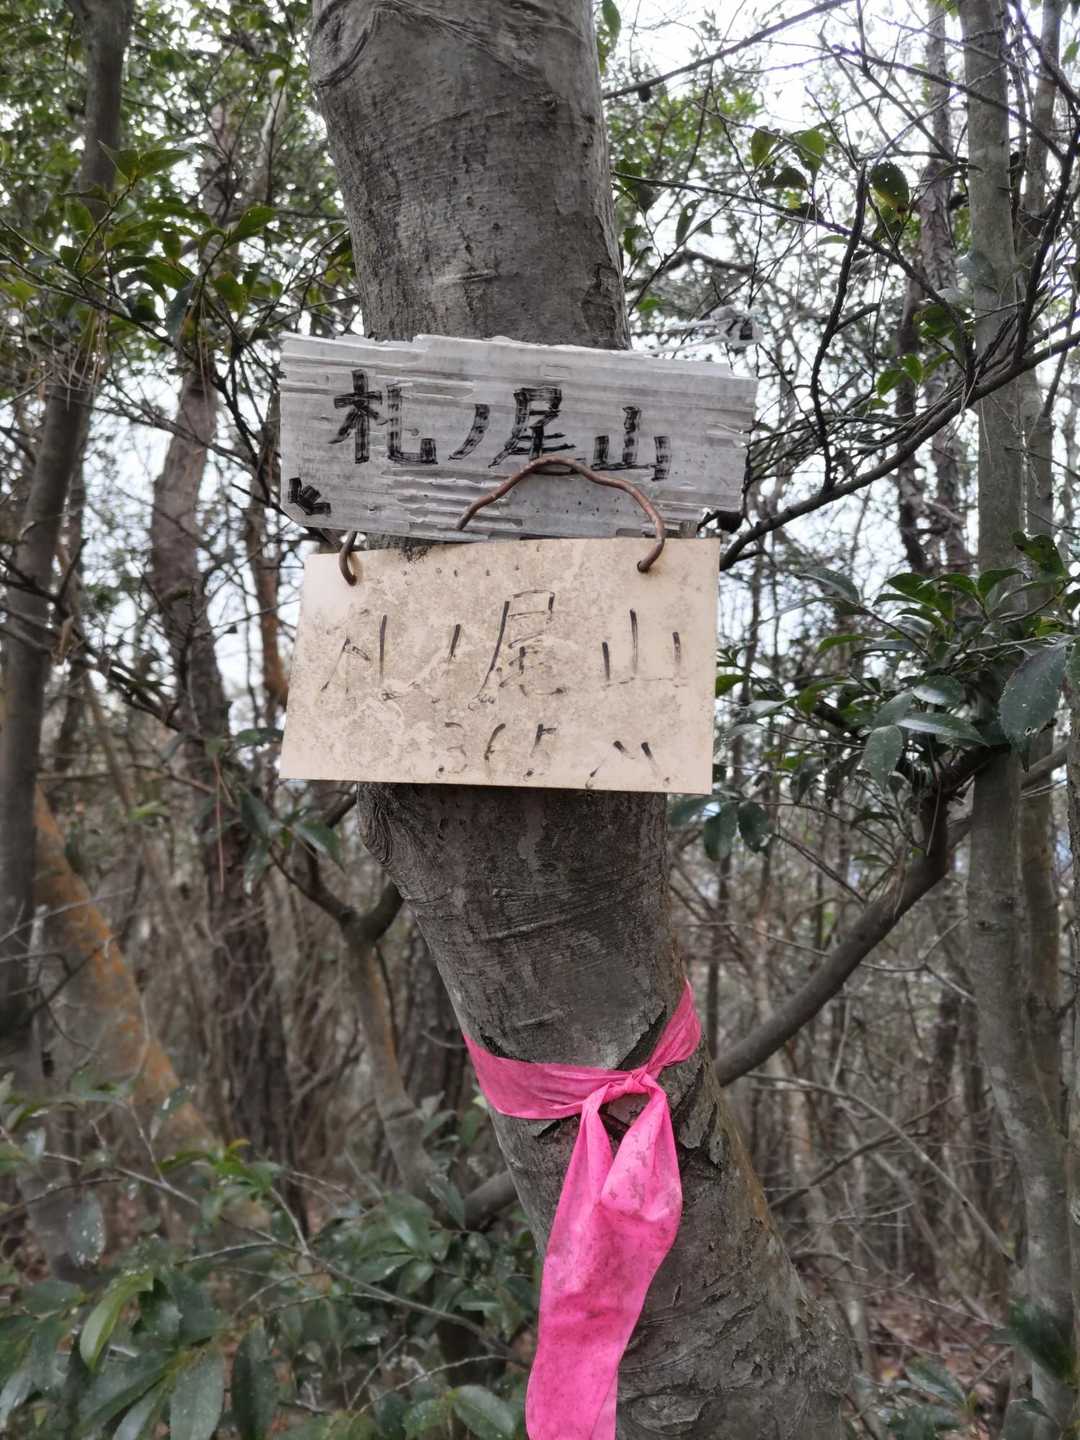 札ノ尾山
札ノ尾山
365M